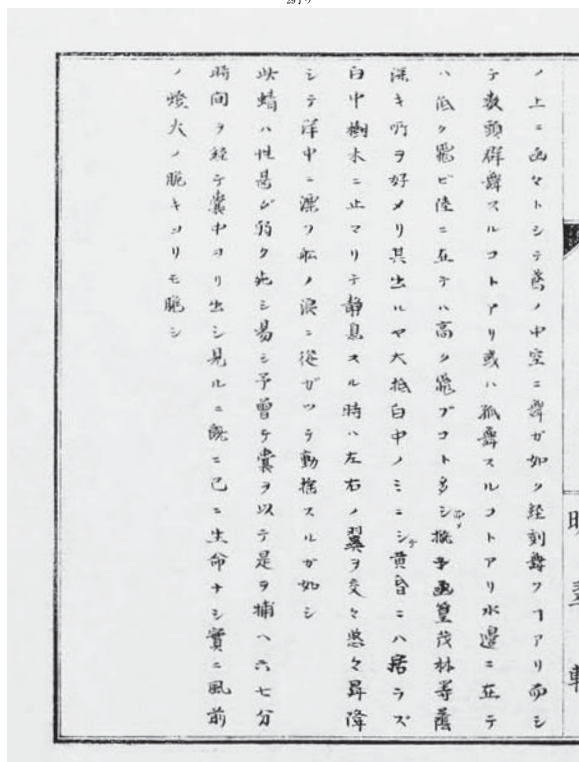 ノ上ニ凾々トシテ鳶ノ中空ニ舞ガ如ク経刻舞フヿアリ而シ
テ数頭群舞スルコトアリ或ハ孤舞スルコトアリ水邊ニ在テ
ハ低ク飛ビ陸ニ在テハ高ク飛ブコト多シ篁茂林等蔭
深キ所ヲ好メリ其出ルヤ大抵白中ノミニシテ黄昏ニハ居ラズ
白中樹木ニ止マリテ静息スル時ハ左右ノ翼ヲ交々悠々昇降
シテ洋中ニ漂フ船ノ浪ニ從ガツテ動揺スルガ如シ
此蜻ハ性甚ダ弱ク死シ易シ予曽テ嚢ヲ以テ是ヲ捕ヘ六七分
時間ヲ経テ嚢中ヨリ出シ見ルニ既ニ已ニ生命ナシ實ニ風前
ノ燈火ノ脆キヨリモ脆シ